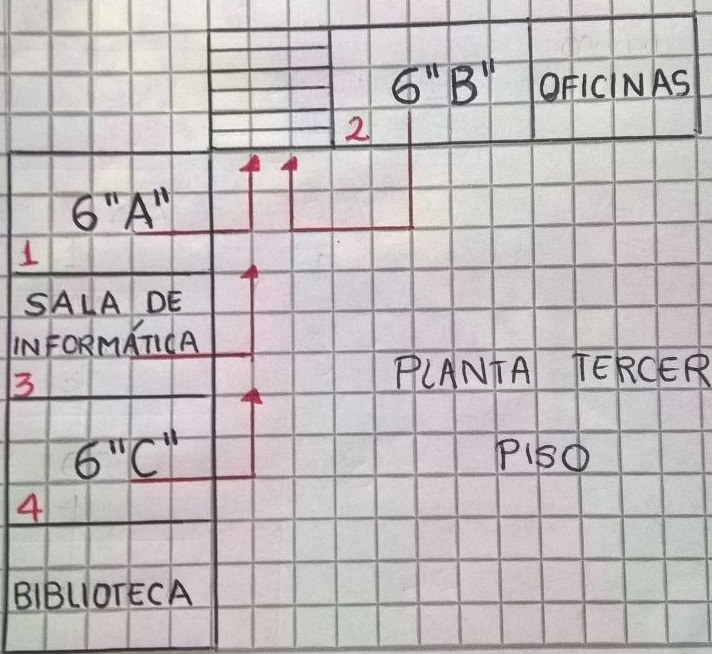 6"B"
OFICINAS
2
6"A"
1
SALA DE
INFORMÁTICA
3
PLANTA TERCER
PISO
6"C"
4
BIBLIOTECA